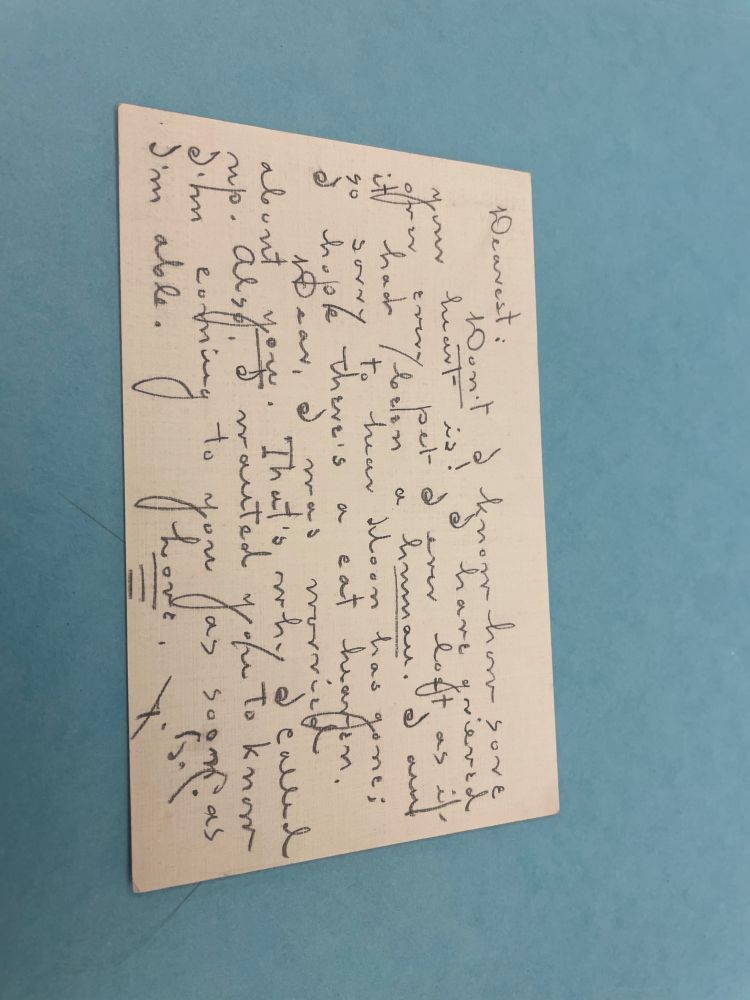 Dearest:
Don't I know how sore
your heart is! I have grieved
over every pet I ever lost as if
it had been a human. I am
so sorry to hear Moon has gone;
I hope there's a cat heaven.
Dear, I was worried
about you. That's why I called
up. Also, I wanted you to know
I'm coming to you as soon as
I'm able. I love.